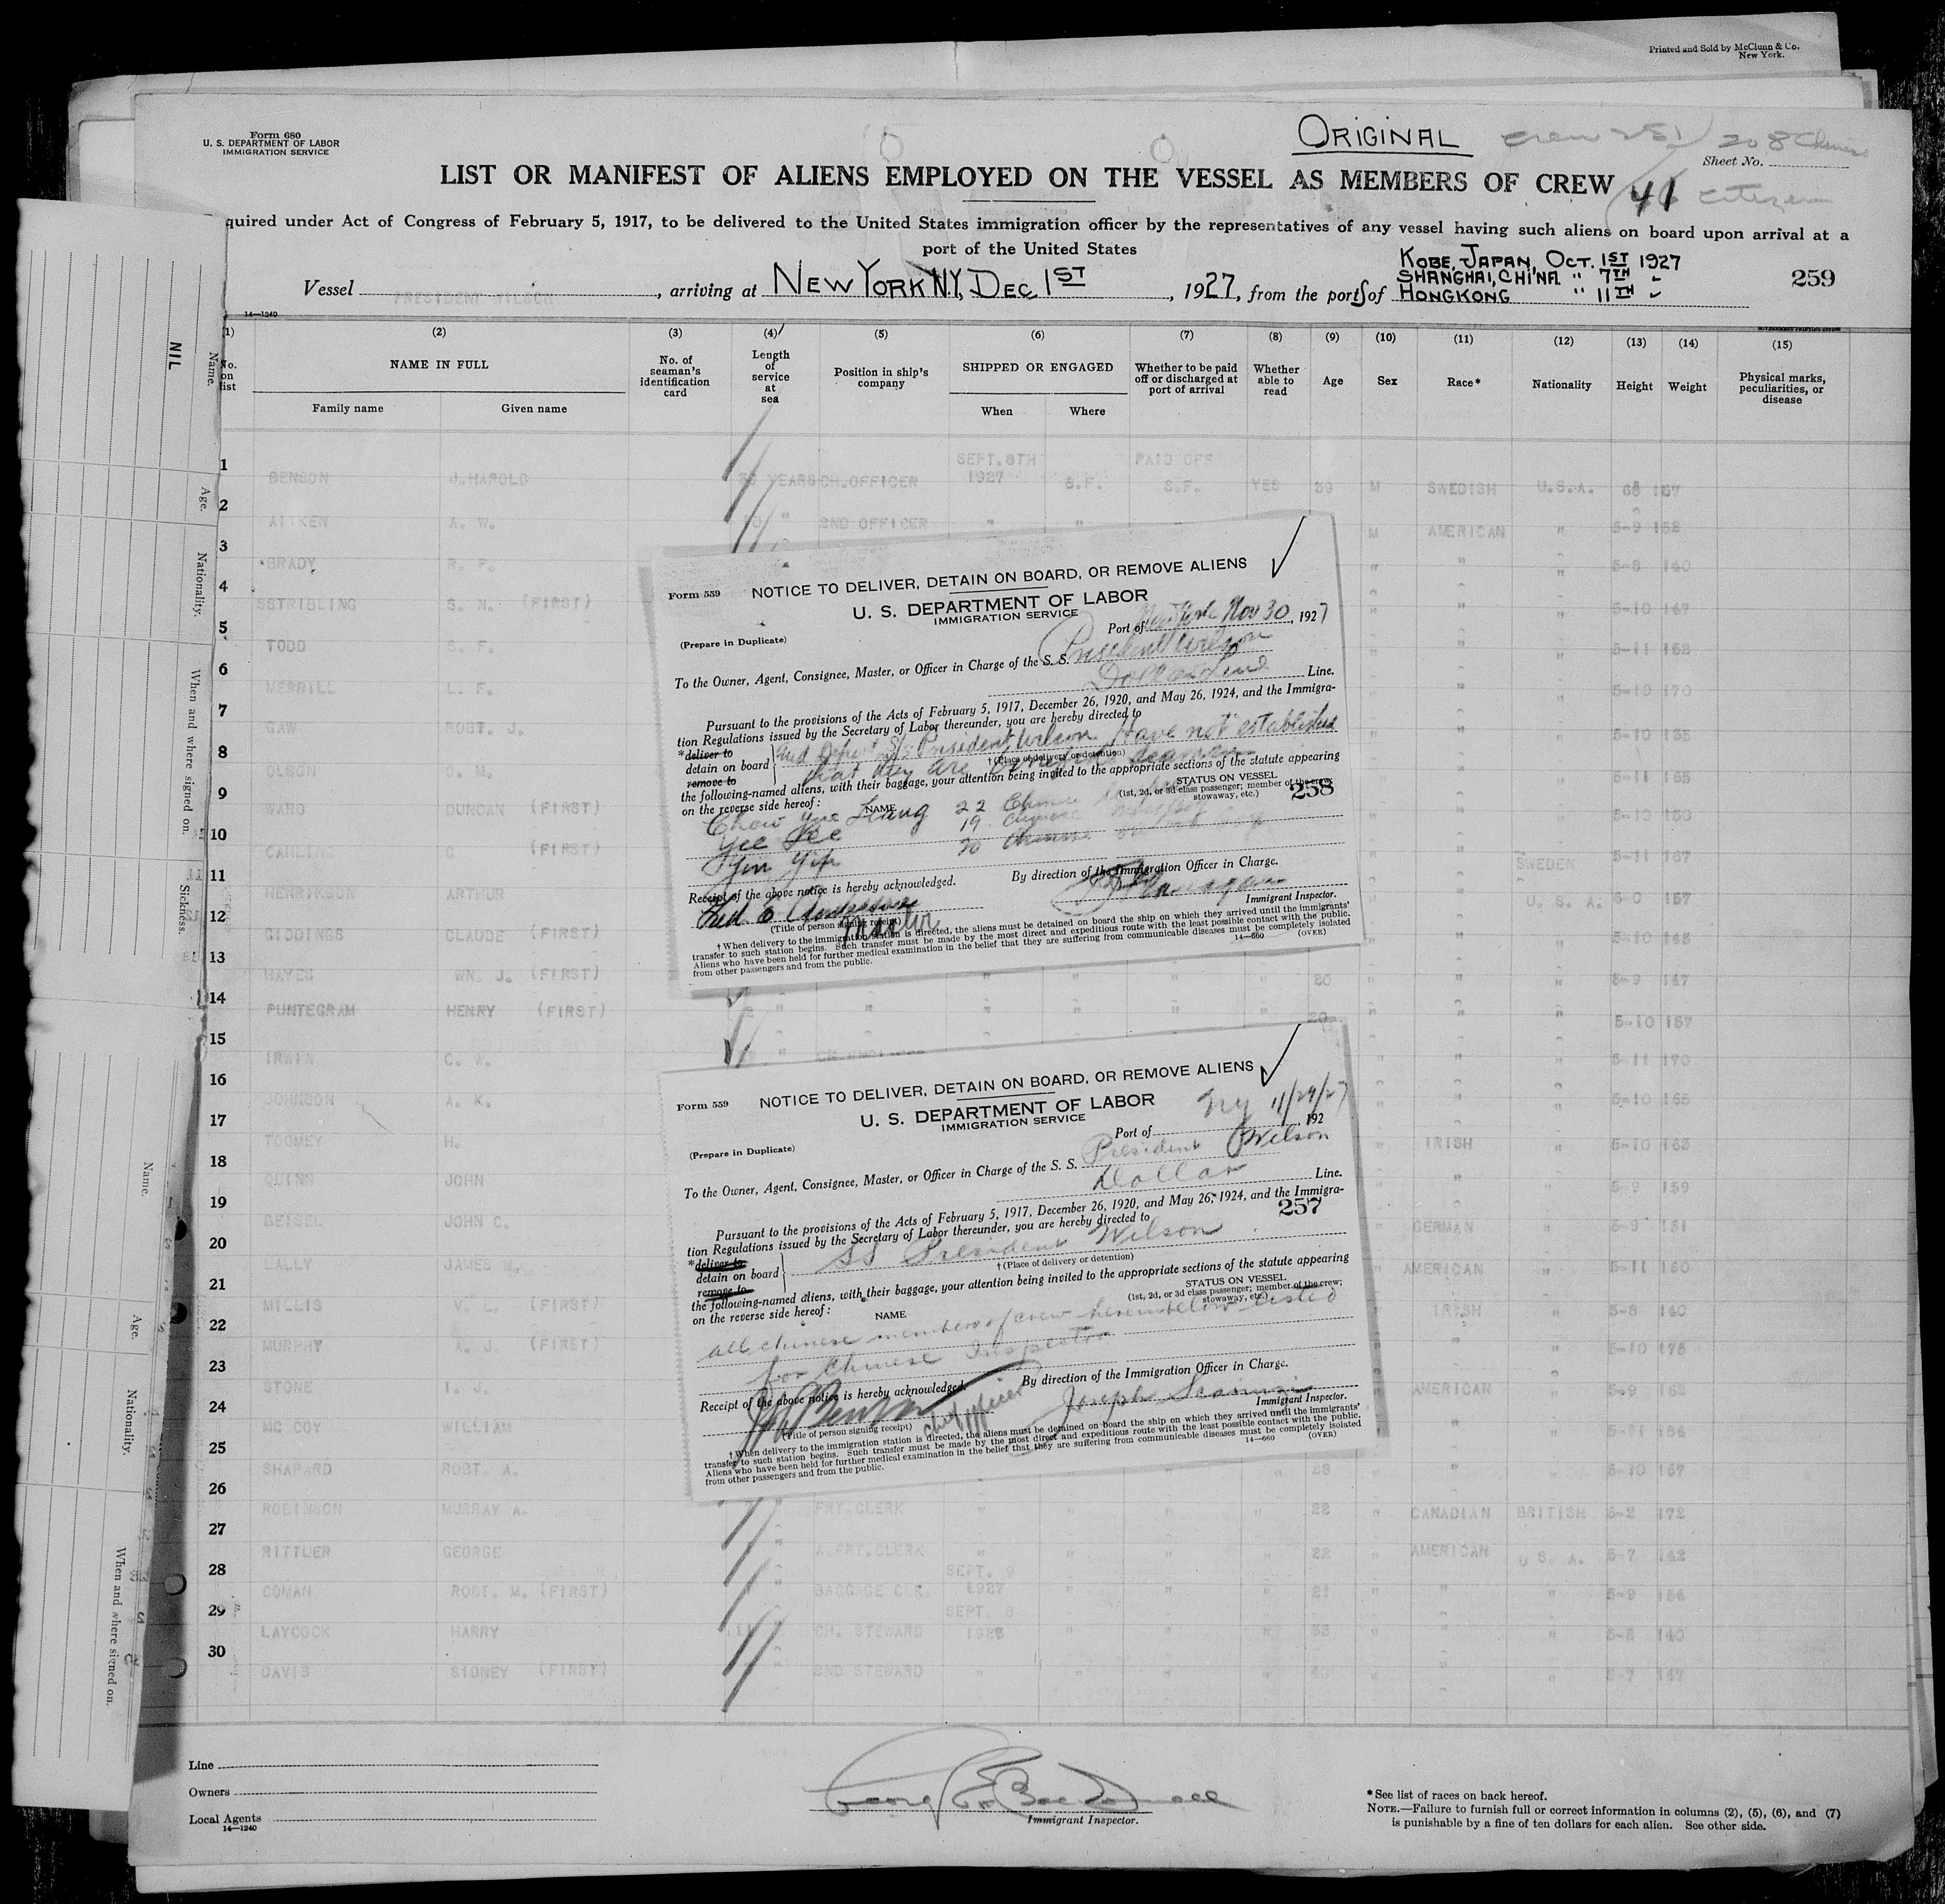 Printed and Sold by McClunn & Co.
New York.
Form 680
U. S. DEPARTMENT OF LABOR
IMMIGRATION SERVICE
ORIGINAL
208 Chinese
Sheet No.
LIST OR MANIFEST OF ALIENS EMPLOYED ON THE VESSEL AS MEMBERS OF CREW
41 citizen
quired under Act of Congress of February 5, 1917, to be delivered to the United States immigration officer by the representatives of any vessel having such aliens on board upon arrival at a
port of the United States
Vessel PRESIDENT WILSON, arriving at NEW YORK N.Y., DEC 1ST, 1927, from the ports of
KOBE, JAPAN, OCT. 1ST 1927
SHANGHAI, CHINA " 7TH "
HONGKONG " 11TH "
259
14—1240
(1) (2) (3) (4) (5) (6) (7) (8) (9) (10) (11) (12) (13) (14) (15)
No. on list
NAME IN FULL
Family name Given name
No. of seaman's identification card
Length of service at sea
Position in ship's company
SHIPPED OR ENGAGED
When Where
Whether to be paid off or discharged at port of arrival
Whether able to read
Age
Sex
Race*
Nationality
Height
Weight
Physical marks, peculiarities, or disease
1 BENSON J.HAROLD YEARS CH.OFFICER SEPT.8TH 1927 S.F. PAID OFF S.F. YES 39 M SWEDISH U.S.A. 167
2 AITKEN A. W. " 2ND OFFICER " " M AMERICAN " 5-9 158
3 BRADY R. F. " " " 5-8 140
4 SSTRIBLING S. N. (FIRST) " " " 5-10 167
5 TODD S. F. " " " 5-11 158
6 MERRILL L. F. " " " 5-10 170
7 GAW ROBT. J. " " " 5-10 135
8 OLSON O. M. " " " 5-11 165
9 WARD DUNCAN (FIRST) " " " 5-10 150
10 CARLIN C (FIRST) " " SWEDEN 5-11 167
11 HENRIKSON ARTHUR " " U. S. A. 6-0 157
12 GIDDINGS CLAUDE (FIRST) " " " 5-10 145
13 HAYES WM. J. (FIRST) " " " " 20 " " " 5-9 147
14 PUNTEGRAM HENRY (FIRST) " " " " " " 20 " " " 5-10 157
15 IRWIN C. W. " " " " 5-11 170
16 JOHNSON A. K. " " " 5-10 165
17 TOOMEY H. " IRISH " 5-10 163
18 QUINN JOHN " " " 5-9 159
19 BEISEL JOHN C. " GERMAN " 5-9 151
20 LALLY JAMES W. " AMERICAN " 5-11 160
21 MILLIS V. L. (FIRST) " IRISH " 5-8 140
22 MURPHY A. J. (FIRST) " " " 5-10 175
23 STONE I. J. " AMERICAN " 5-9 163
24 MC COY WILLIAM " " " 5-11 154
25 SHAPARD ROBT. A. " " " " 28 " " " 5-10 167
26 ROBINSON MURRAY A. FRT.CLERK " " " " 22 " CANADIAN BRITISH 5-2 172
27 RITTLER GEORGE " A.FRT.CLERK " " " " 22 " AMERICAN U S. A. 5-7 142
28 COMAN ROBT. M. (FIRST) " BAGGAGE C.K. SEPT. 9 1927 " " " 21 " " " 5-9 154
29 LAYCOCK HARRY CH. STEWARD SEPT. 8 192 " " " " " " 5-8 140
30 DAVIS SIDNEY (FIRST) " 2ND STEWARD " " " " " " " 5-7 147
Form 559
NOTICE TO DELIVER, DETAIN ON BOARD, OR REMOVE ALIENS
U. S. DEPARTMENT OF LABOR
IMMIGRATION SERVICE
(Prepare in Duplicate)
Port of New York Nov 30, 1927
To the Owner, Agent, Consignee, Master, or Officer in Charge of the S. S. President Wilson
Dollar Line Line.
Pursuant to the provisions of the Acts of February 5, 1917, December 26, 1920, and May 26, 1924, and the Immigra-
tion Regulations issued by the Secretary of Labor thereunder, you are hereby directed to
*deliver to
detain on board
remove to
and deport S/S President Wilson. Have not established
that they are bona fide seamen
† (Place of delivery or detention)
the following-named aliens, with their baggage, your attention being invited to the appropriate sections of the statute appearing
on the reverse side hereof:
NAME
STATUS ON VESSEL
(1st, 2d, or 3d class passenger; member of the crew;
stowaway, etc.)
258
Chow Yue Liang 22 Chinese
Yee Lee 19 Chinese
Yim Yip 20 Chinese
By direction of the Immigration Officer in Charge.
Receipt of the above notice is hereby acknowledged.
Immigrant Inspector.
Master
(Title of person signing receipt)
† When delivery to the immigration station is directed, the aliens must be detained on board the ship on which they arrived until the immigrants'
transfer to such station begins. Such transfer must be made by the most direct and expeditious route with the least possible contact with the public.
Aliens who have been held for further medical examination in the belief that they are suffering from communicable diseases must be completely isolated
from other passengers and from the public.
14—660
(OVER)
Form 559
NOTICE TO DELIVER, DETAIN ON BOARD, OR REMOVE ALIENS
U. S. DEPARTMENT OF LABOR
IMMIGRATION SERVICE
(Prepare in Duplicate)
Port of NY 11/29/27, 192
To the Owner, Agent, Consignee, Master, or Officer in Charge of the S. S. President Wilson
Dollar Line.
Pursuant to the provisions of the Acts of February 5, 1917, December 26, 1920, and May 26, 1924, and the Immigra-
tion Regulations issued by the Secretary of Labor thereunder, you are hereby directed to
257
*deliver to
detain on board
remove to
SS President Wilson
† (Place of delivery or detention)
the following-named aliens, with their baggage, your attention being invited to the appropriate sections of the statute appearing
on the reverse side hereof:
NAME
STATUS ON VESSEL
(1st, 2d, or 3d class passenger; member of the crew;
stowaway, etc.)
all chinese members of crew hereinbelow listed
for Chinese Inspector
By direction of the Immigration Officer in Charge.
Receipt of the above notice is hereby acknowledged.
Joseph
Immigrant Inspector.
Benson chief officer
(Title of person signing receipt)
† When delivery to the immigration station is directed, the aliens must be detained on board the ship on which they arrived until the immigrants'
transfer to such station begins. Such transfer must be made by the most direct and expeditious route with the least possible contact with the public.
Aliens who have been held for further medical examination in the belief that they are suffering from communicable diseases must be completely isolated
from other passengers and from the public.
14—660
(OVER)
NIL
Name.
Age.
Nationality.
When and where signed on.
Sickness.
Name.
Age.
Nationality.
When and where signed on.
Line
Owners
Local Agents
14—1240
Immigrant Inspector.
*See list of races on back hereof.
NOTE.—Failure to furnish full or correct information in columns (2), (5), (6), and (7)
is punishable by a fine of ten dollars for each alien. See other side.